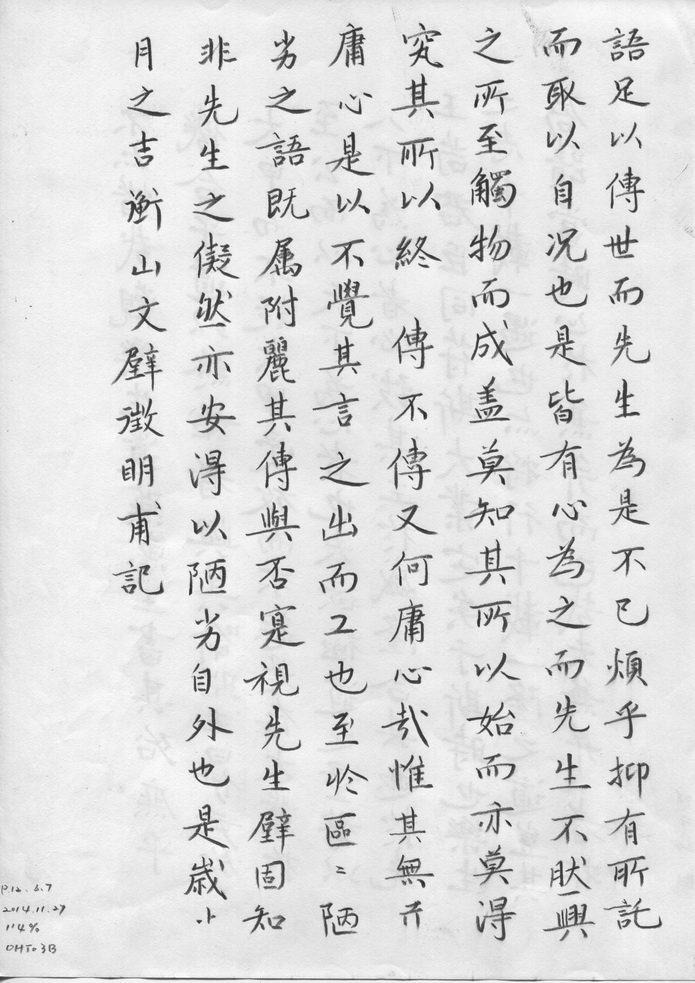 語足以傳世而先生為是不已煩乎抑有所託
而取以自况也是皆有心為之而先生不然興
之所至觸物而成盖莫知其所以始而亦莫得
究其所以終 傳不傳又何庸心哉惟其無所
庸心是以不覺其言之出而工也至於區〻陋
劣之語既属附麗其傳與否寔視先生壁固知
非先生之儗然亦安得以陋劣自外也是歳小
月之吉衡山文壁徴明甫記
P.12. 6.7
2014.11.27
114%
OHTo 3B